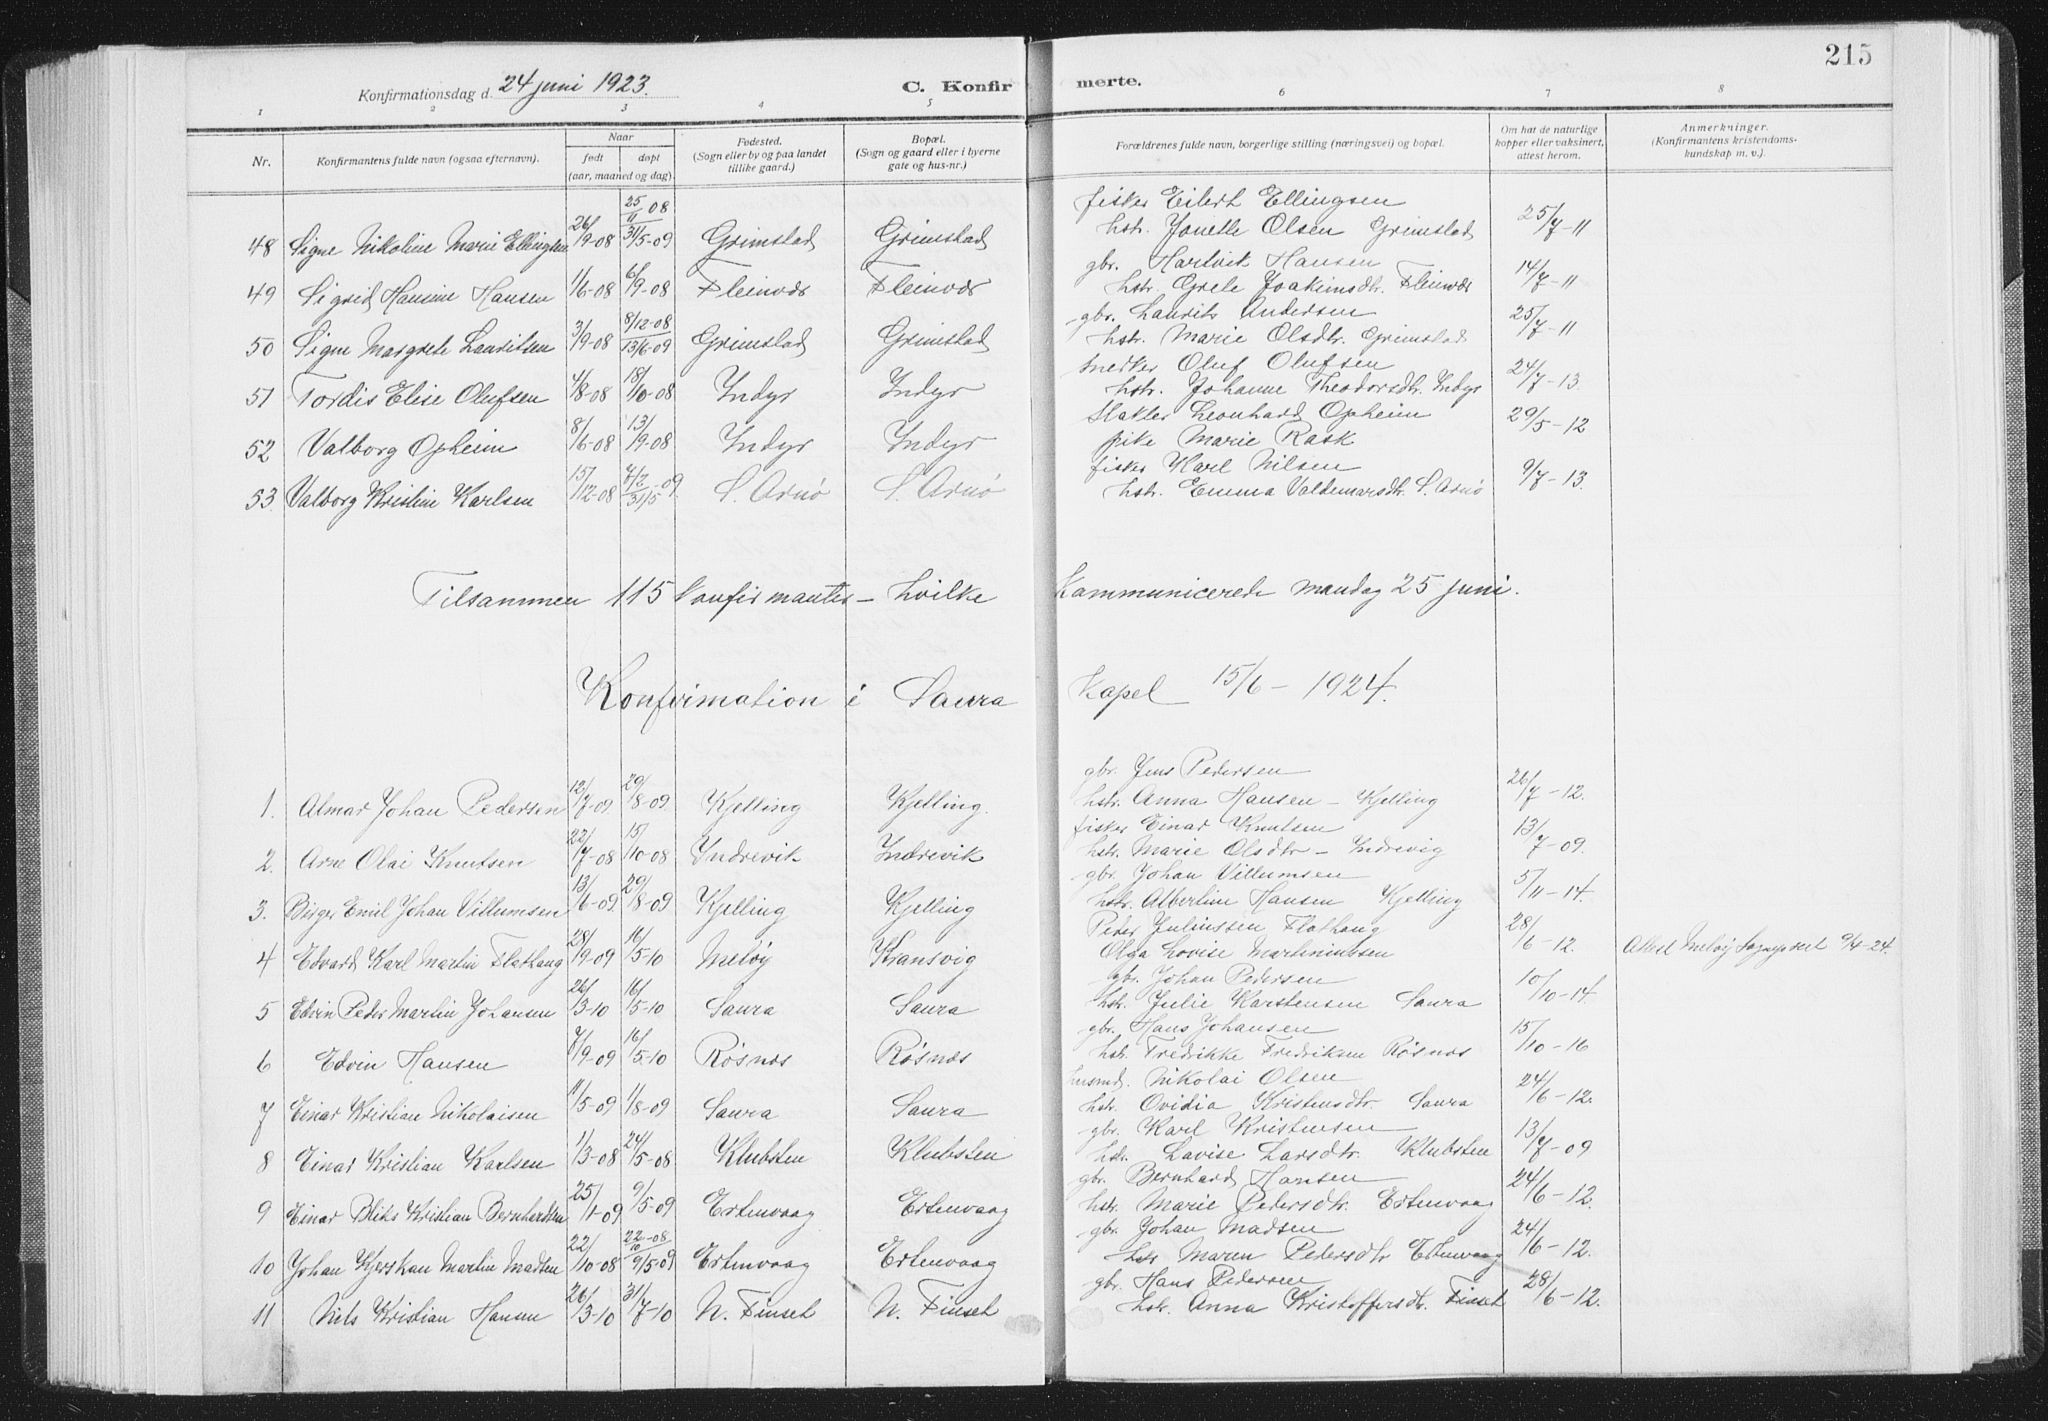 215
Konfirmationsdag d. 24 juni 1923.
C. Konfirmerte.
1 2 3 4 5 6 7 8
Nr.
Konfirmantens fulde navn (ogsaa efternavn).
Naar
født døpt
(aar, maaned og dag).
Fødested.
(Sogn eller by og paa landet
tillike gaard.)
Bopæl.
(Sogn og gaard eller i byerne
gate og hus-nr.)
Forældrenes fulde navn, borgerlige stilling (næringsvei) og bopæl.
Om hat de naturlige
kopper eller vaksinert,
attest herom.
Anmerkninger.
(Konfirmantens kristendoms-
kundskap m. v.).
48 Signe Nikoline Marie Ellingsen 26/9-08 25/11 08 31/5-09 Grimstad Grimstad fisker Eilert Ellingsen
hstr. Jonette Olsen Grimstad 25/7-11
49 Sigrid Hansine Hansen 1/6-08 6/9-08 Fleinvær Fleinvær gbr. Hartvik Hansen
hstr. Grele Joakimsdtr. Fleinvær 14/7-11
50 Signe Margrete Lauritsen 3/9-08 8/12-08 13/6-09 Grimstad Grimstad gbr. Laurits Andersen
hstr. Marie Olsdtr. Grimstad 25/7-11
51 Tordis Elise Olufsen 4/8-08 18/10-08 Indyr Indyr snedker Oluf Olufsen
hstr. Johanne Theodorsdtr. Indyr 24/7-13.
52 Valborg Opheim 8/6-08 13/9-08 Indyr Indyr Slakter Leonhard Opheim
pike Marie Rask 29/5-12
53. Valborg Kristine Karlsen 15/12-08 7/2 31/5 -09 S. Arnø S. Arnø fisker Karl Nilsen
hstr. Emma Valdemarsdtr. S. Arnø 9/7-13.
Tilsammen 115 konfirmanter - hvilke kommunicerede mandag 25 juni.
Konfirmation i Saura Kapel 15/6-1924.
1. Almar Johan Pedersen 12/7-09 29/8-09 Kjelling Kjelling. gbr. Jens Pedersen
hstr. Anna Hansen - Kjelling 26/7-12.
2. Arne Olai Knutsen 22/7-08 15/10-08 Indrevik Indrevik fisker Einar Knutsen
hstr. Marie Olsdtr - Indrevig 13/7-09.
3. Birger Emil Johan Villumsen 13/6-09. 29/8-09 Kjelling Kjelling gbr. Johan Villumsen
hstr. Albertine Hansen Kjelling 5/11-14.
4 Edvard Karl Martin Flathaug 28/9-09 16/5-10 Meløy Kransvig Peder Juliussen Flathaug
Olga Lovise Martiniussen 28/6-12. Attest Meløy Sogneprest 9/4-24.
5 Edvin Peder Martin Johansen 26/3-10 16/5-10 Saura Saura gbr. Johan Pedersen
hstr. Julie Karstensen Saura 10/10-14.
6 Edvin Hansen 7/9-09 16/5-10 Røsnæs Røsnæs gbr. Hans Johansen
hstr. Fredrikke Fredriksen Røsnæs 15/10-16
7 Einar Kristian Nikolaisen 11/5-09 1/8-09 Saura Saura husmd. Nikolai Olsen
hstr. Ovidia Kristensdtr. Saura 24/6-12.
8 Einar Kristian Karlsen 1/3-08 24/5-08 Klubsten Klubsten gbr. Karl Kristensen
hstr. Lovise Larsdtr. Klubsten 13/7-09
9 Einar Kristian Bernhardsen 25/1-09 9/5-09 Ertenvaag Ertenvaag gbr. Bernhard Hansen
hstr. Marie Pedersdtr. Ertenvaag 24/6-12.
10 Johan Martin Madsen 22/10-08 22-08/10 9/5-09 Ertenvaag Ertenvaag gbr. Johan Madsen
hstr Maren Pedersdtr Ertenvaag 24/6-12.
11 Nils Kristian Hansen 26/3-10 31/7-10 N. Finset N. Finset gbr. Hans Pedersen
hstr. Anna Kristoffersdtr. Finset 28/6-12.